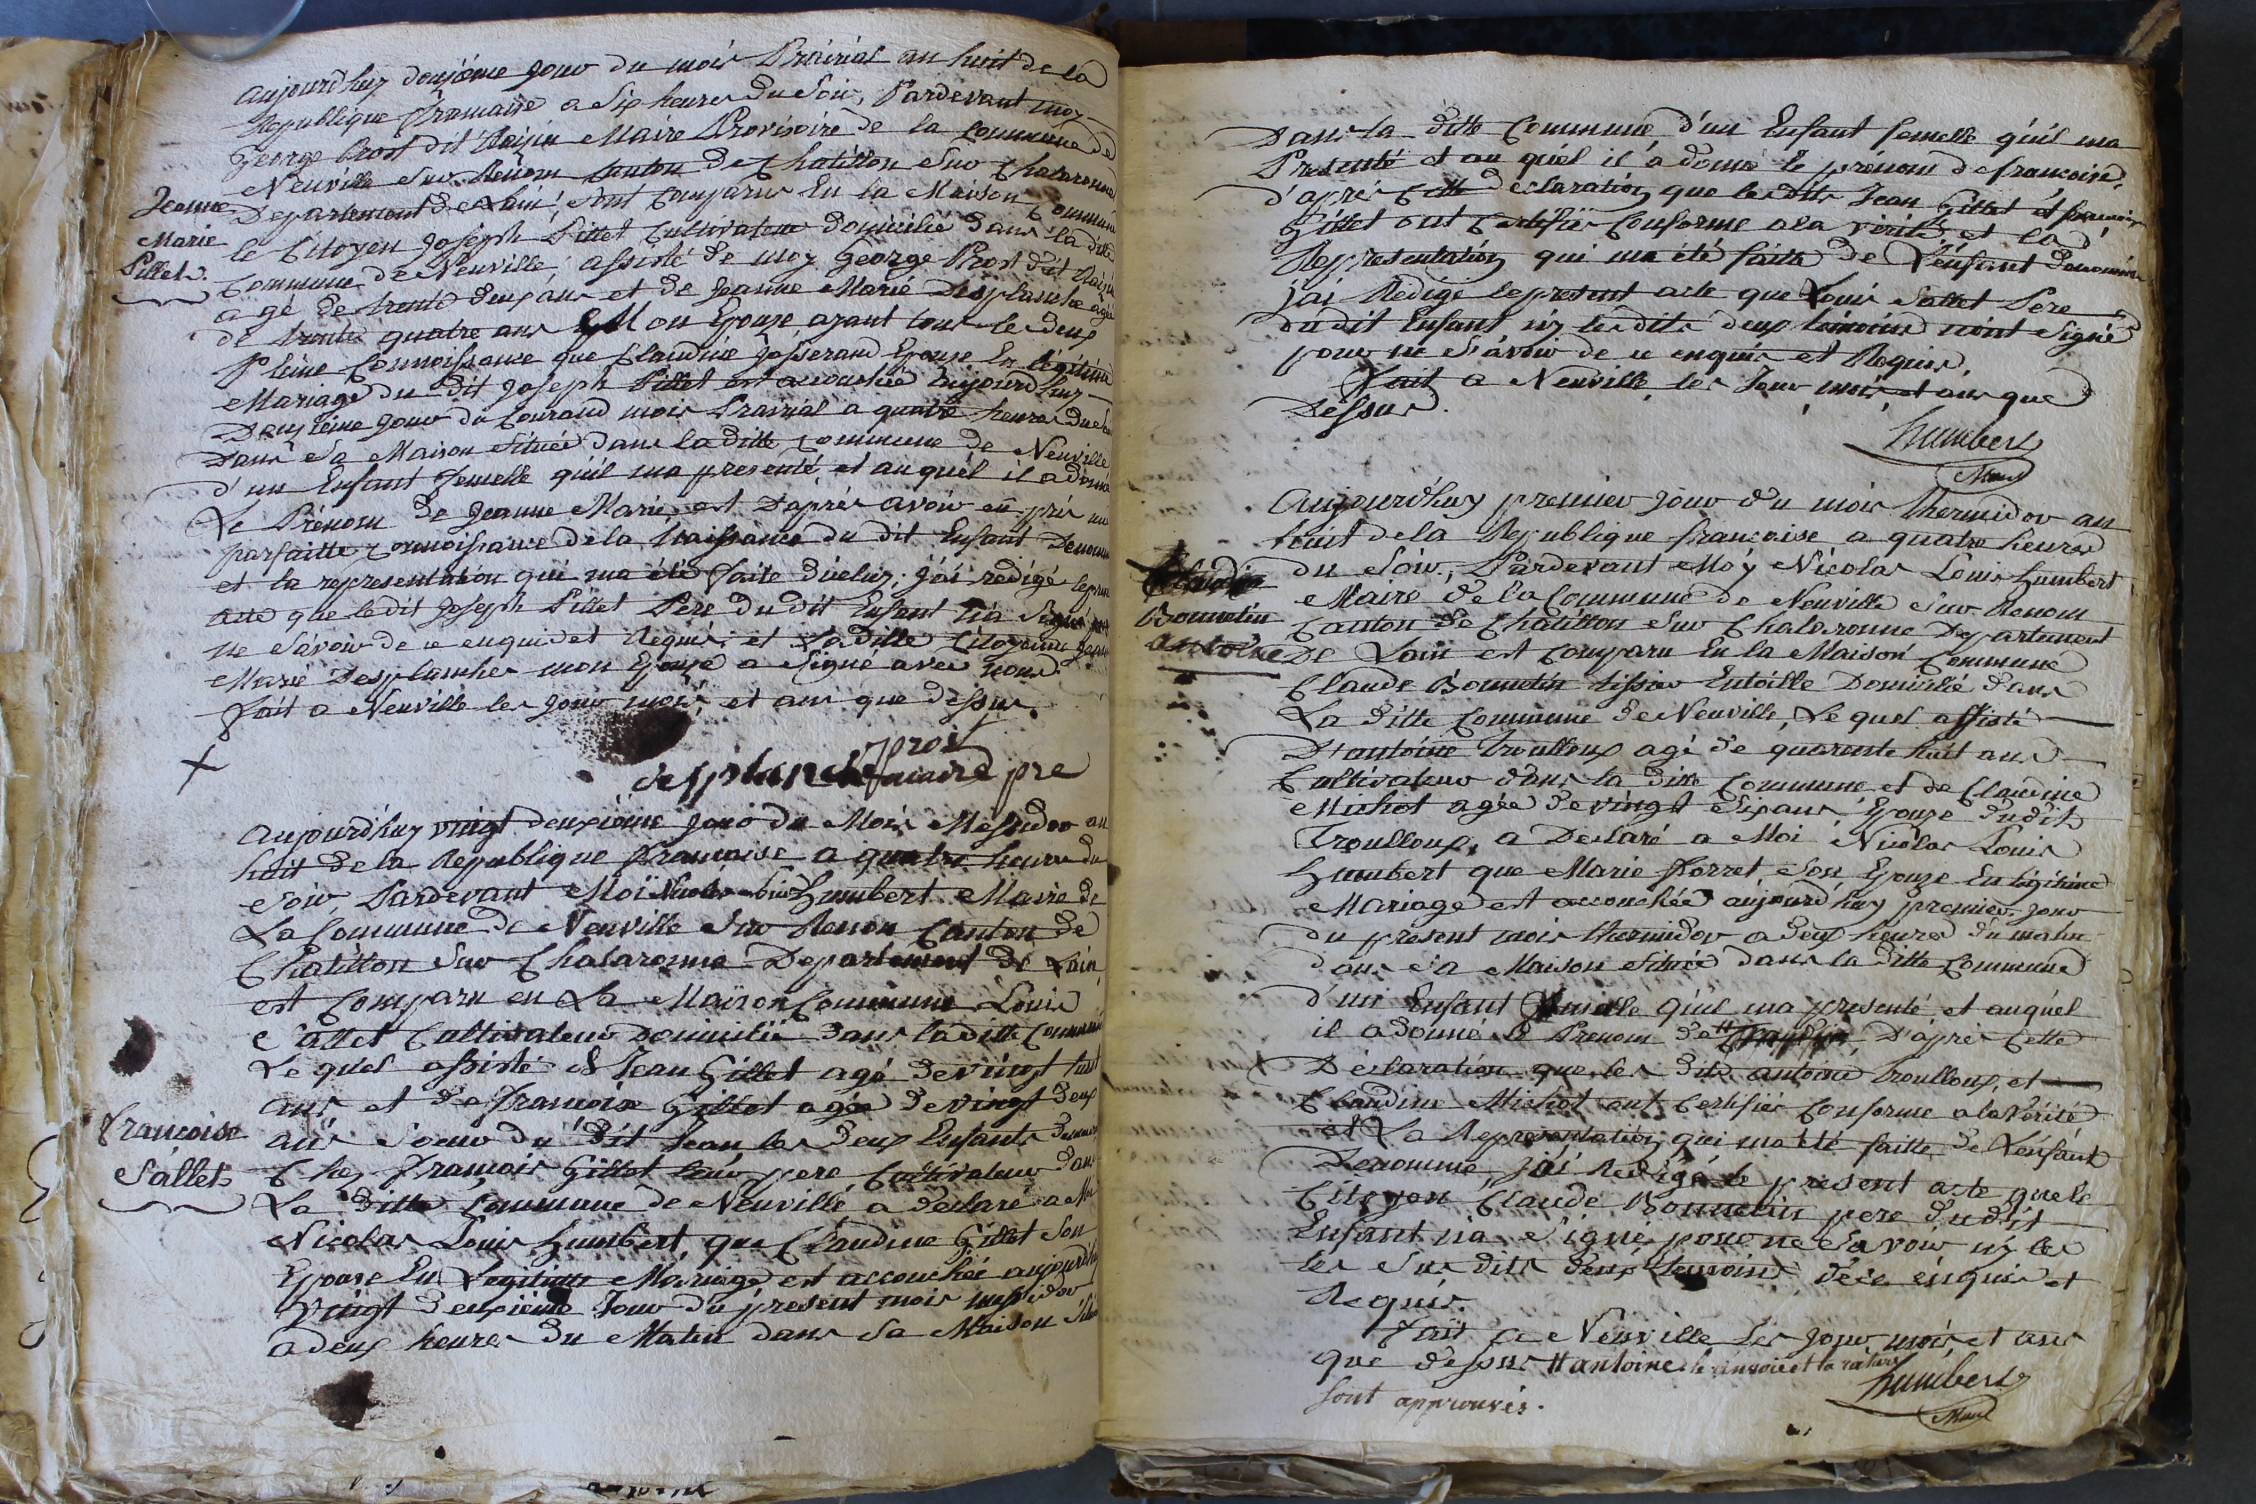 aujourdhuy douzième jour du mois Prairial an huit de la
Republique francaise a six heures du Soir, Pardevant moy
George Prost dit Raisin Maire Provisoire de la commune de
Neuville sur Renom Canton de Chatillon sur Chalaronne
Departement de Lain, sont Comparus En la Maison Commune
le Citoyen Joseph Pillet Cultivateur domicilié dans la ditte
Commune de Neuville, assisté de moy George Prost dit Raisin
agé de trente deux ans et de Jeanne Marie Desplanche agée
de trente quatre ans Mon Epouze ayant tous les deux
Pleine Connoissance que Claudine Josserand Epouze En légitime
Mariage du dit Joseph Pillet est accouchée aujourdhuy
Douzième jour du Courand mois Prairial a quatre heures du
Dans Sa Maison Située dans la ditte Commune de Neuville
d'un Enfant femelle qu'il ma presenté et au quel il a donné
Le Prénom de Jeanne Marie, et Daprès avoir en pris une
parfaitte Connoissance de la Naissance du dit Enfant Denommé
et la representation qui ma été faite diceluy; j'ai redigé le
acte que ledit Joseph Pillet Pere du dit Enfant n'a Signé
ne Savoir de ce enquis et Requis; et La ditte Citoyenne
Marie Desplanches mon Epouze a Signé avec nous
fait a Neuville les jour mois et ans que dessus.
Jeanne
Marie
Pillet
Prost
desplanche maire pre
aujourd'huy vingt deuxième jour du Mois Messidor an
huit de la Republique francaise a quatre heures du
Soir Pardevant Moi Nicolas Louis Humbert Maire de
La Commune de Neuville Sur Renon Canton de
Chatillon Sur Chalaronne Departement de Lain
est Comparu en La Maison Commune Louis
Sallet Cultivateur Domicilié dans la ditte Commune
Le quel assisté de Jean Gillet agé de vingt huit
ans et de francoise Gillet agée de vingt deux
ans Soeur du dit Jean les deux Enfants
Chez francois Gillet leur pere Cultivateur dans
La ditte Commune de Neuville a declaré a Moi
Nicolas Louis Humbert, que Claudine Gillet Son
Epouse En Legitime Mariage est accouchée aujourd'huy
Vingt deuxieme Jour du present mois messidor
a deux heures du Matin dans Sa Maison
francoise
Sallet
Dans la ditte Commune, d'un Enfant femelle qu'il ma
Presenté et au quel il a donné le prenom de francoise,
d'apré Cette declaration que les dits Jean Gillet et francoise
Gillet ont Certifiés Conforme a la vérité et la
Representation qui ma été faite de l'enfant denommé
j'ai Redigé le present acte que Louis Sallet Pere
du dit Enfant n'y les dits deux temoins n'ont Signé
pour ne Sávoir de ce enquis et Requis.
Fait a Neuville les Jour mois et ans que
Dessus.
humbert
Maire
Aujourd'huy premier jour du mois Thermidor an
huit de la Republique francaise a quatre heures
du Soir, Pardevant Moy Nicolas Louis Humbert
Maire de la Commune de Neuville Sur Renom
Canton de Chatillon Sur Chalaronne Departement
De Lain est Comparu En la Maison Commune
Claude Bonnetin tissier Entoille Domicilié dans
La ditte Commune de Neuville, Le quel assisté
D'antoine Troulloup agé de quarente huit ans
Cultivateur dans la ditte Commune et de Claudine
Michot agée de vingt Six ans Epouze du dit
Troulloup, a Déclaré a Moi Nicolas Louis
Humbert que Marie Forret Son Epouze En légitime
Mariage est accouchée aujourd'huy premier jour
du present mois thermidor a deux heures du matin
dans sa Maison Située dans la ditte Commune
d'un Enfant qu'il ma presenté et auquel
il a donné le Prenom de D'apré Cette
Déclaration que les dits antoine troulloup, et
Claudine Michot ont Certifiés Conforme a la Vérité
et La Representation qui ma été faitte de L'enfant
Denommé, j'ai Redigé le present acte que le
Citoyen Claude Bonnetin pere du dit
Enfant n'a Signé pour ne Savoir n'y les
les Sus dits deux temoins de ce enquis et
Requis.
Fait a Neuville les jour mois et ans
que dessus # antoine le renvoi et la rature
sont approuvés.
humbert
Maire
Claudine
Bonnetin
antoine